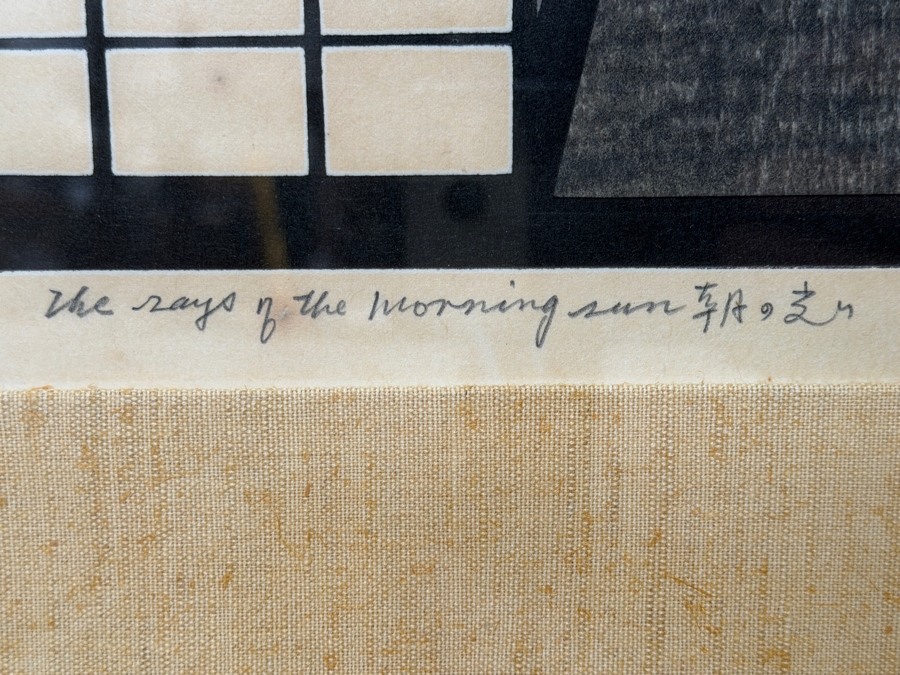 The rays of the morning sun 朝の光り